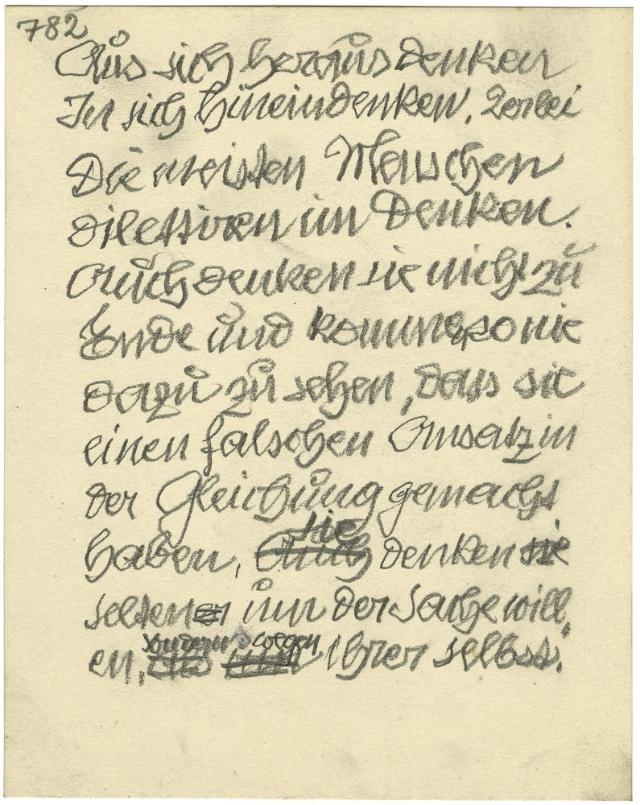 782
Aus sich heraus denken
In sich hineindenken.
Die meisten Menschen
dilettiren im Denken.
Auch denken sie nicht zu
Ende und kommen so nie
dazu zu sehen, dass sie
einen falschen Ansatz in
der Gleichung gemacht
sie
haben, Auch denken sie
selten um der Sache will
sondern wegen
en, ihrer selbst.